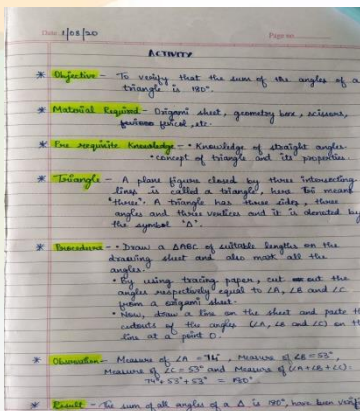 Date 1/08/20 Page no
ACTIVITY
* Objective - To verify that the sum of the angles of a
triangle is 180°.
* Material Required - Origami sheet, geometry box, scissors,
pencil, etc.
* Pre requisite Knowledge - • Knowledge of straight angles.
• concept of triangle and its properties.
* Triangle - A plane figure closed by three intersecting
lines is called a triangle, here Tri means
"three". A triangle has three sides, three
angles and three vertices and it is denoted by
the symbol "Δ".
* Procedure - • Draw a ΔABC of suitable lengths on the
drawing sheet and also mark all the
angles.
• By using tracing paper, cut out the
angles respectively equal to ∠A, ∠B and ∠C
from a origami sheet.
• Now, draw a line on the sheet and paste th
cutouts of the angles (∠A, ∠B and ∠C) on th
line at a point O.
* Observation - Measure of ∠A = 74°, Measure of ∠B = 53°,
Measure of ∠C = 53° and Measure of ∠(A+∠B+∠C):
74°+53°+53° = 180°.
* Result - The sum of all angles of a Δ is 180°, have been verif